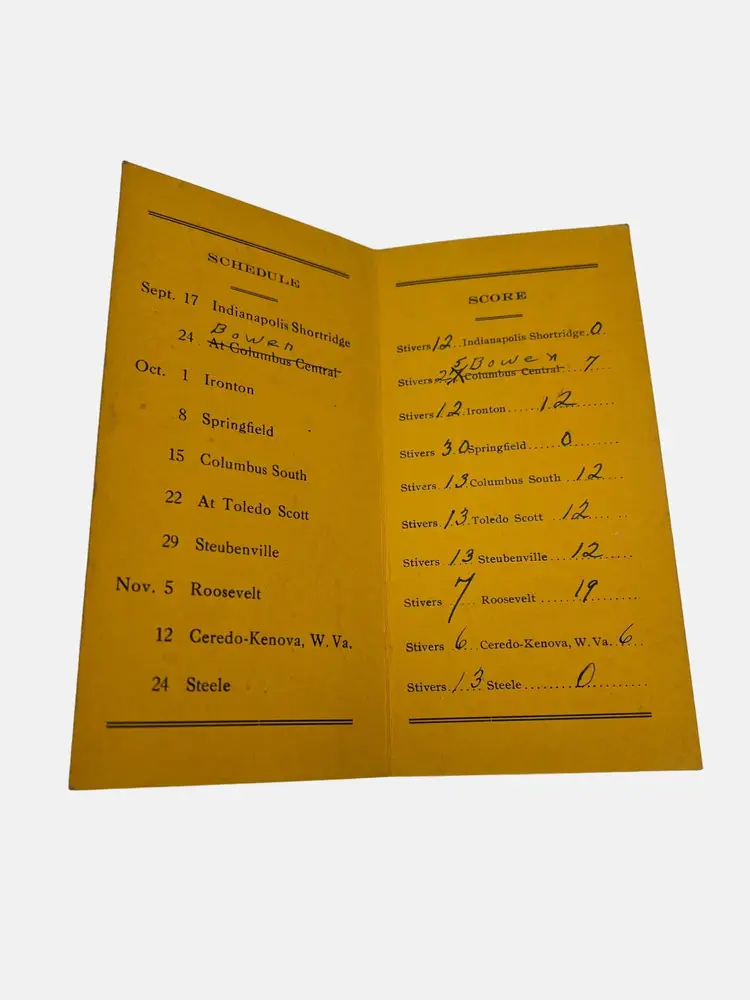 SCHEDULE
Sept. 17 Indianapolis Shortridge
Bowen
24 At Columbus Central
Oct. 1 Ironton
8 Springfield
15 Columbus South
22 At Toledo Scott
29 Steubenville
Nov. 5 Roosevelt
12 Ceredo-Kenova, W. Va.
24 Steele
SCORE
Stivers 12 Indianapolis Shortridge 0
Bowen
Stivers Columbus Central 7
Stivers 12 Ironton 12
Stivers 30 Springfield 0
Stivers 13 Columbus South 12
Stivers 13 Toledo Scott 12
Stivers 13 Steubenville 12
Stivers 7 Roosevelt 19
Stivers 6 Ceredo-Kenova, W. Va. 6
Stivers 13 Steele 0